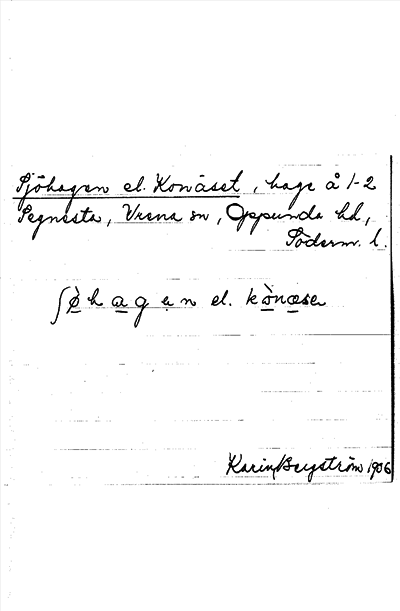 Sjöhagen el. Konäset, hage å 1-2
Segnesta, Vrena sn, Oppunda hd,
Söderm. l.
ʃø̀hagen el. kònæse
Karin Bergström 1906